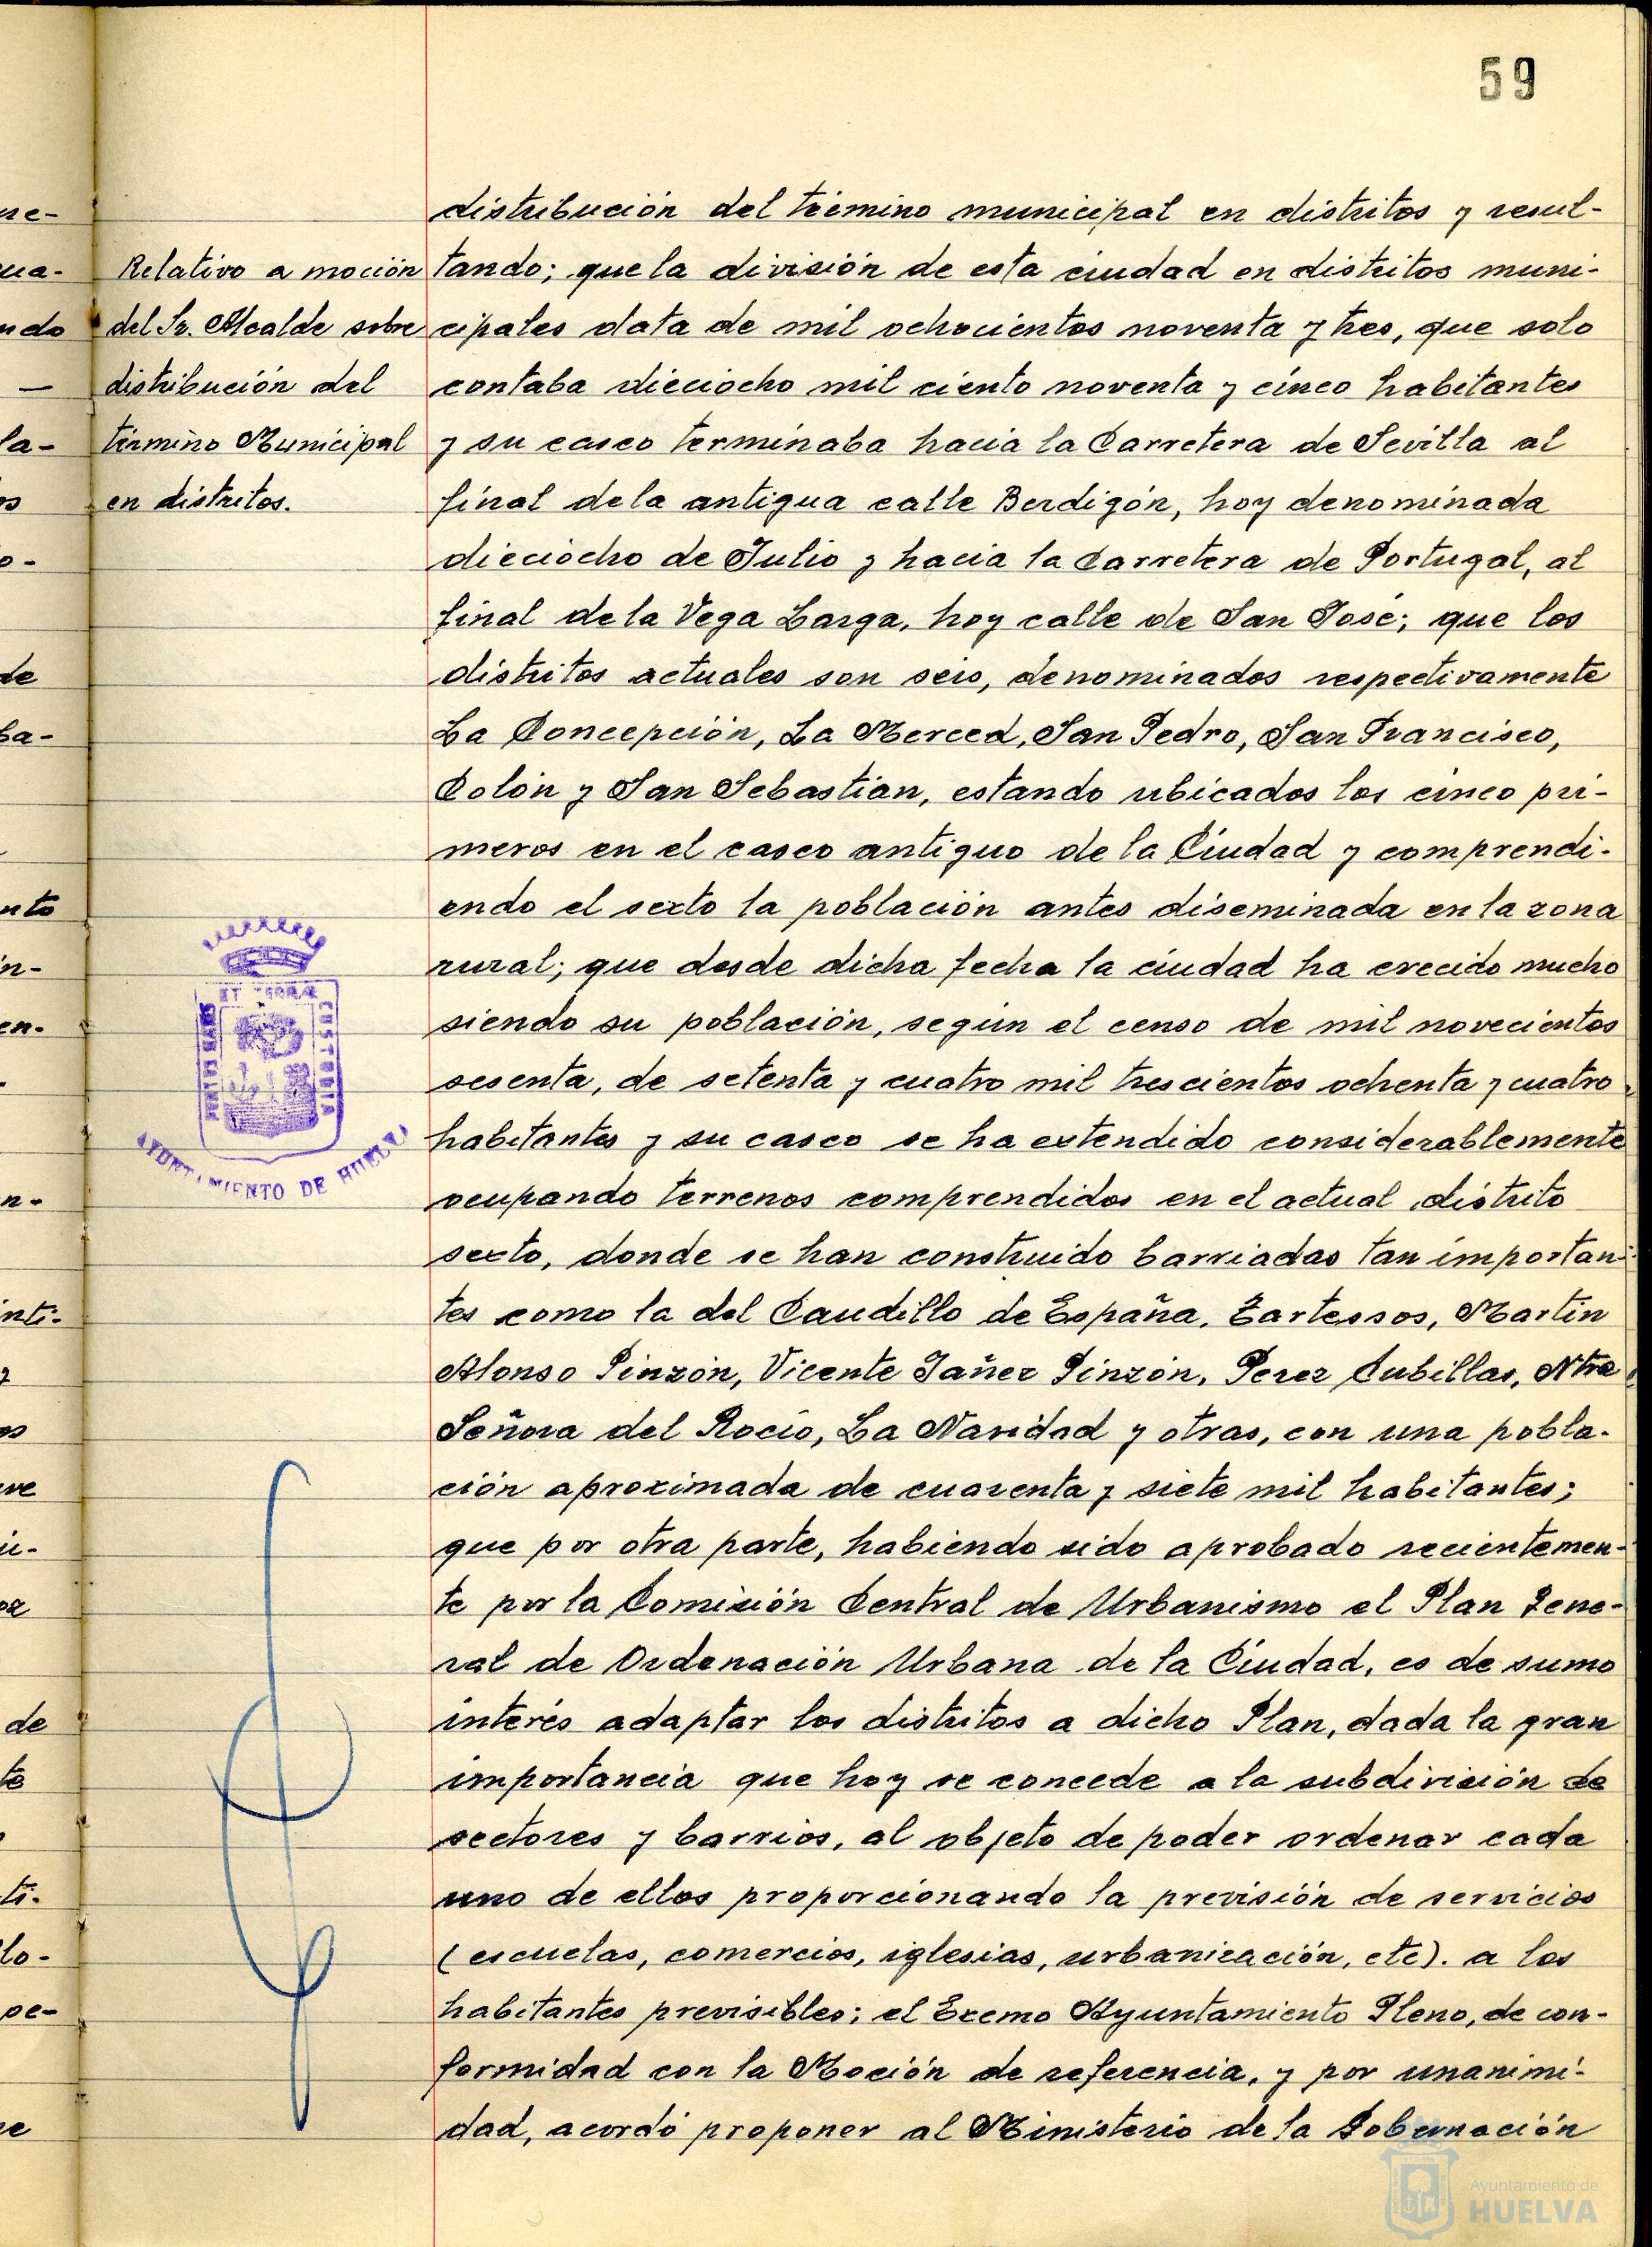 59
distribución del término municipal en distritos y resul-
tando; que la división de esta ciudad en distritos muni-
cipales data de mil ochocientos noventa y tres, que solo
contaba dieciocho mil ciento noventa y cinco habitantes
y su casco terminaba hacia la Carretera de Sevilla al
final de la antigua calle Berdigón, hoy denominada
dieciocho de Julio y hacia la Carretera de Portugal, al
final de la Vega Larga, hoy calle de San José; que los
distritos actuales son seis, denominados respectivamente
La Concepción, La Merced, San Pedro, San Francisco,
Colón y San Sebastián, estando ubicados los cinco pri-
meros en el casco antiguo de la Ciudad y comprendi-
endo el sexto la población antes diseminada en la zona
rural; que desde dicha fecha la ciudad ha crecido mucho
siendo su población, según el censo de mil novecientos
sesenta, de setenta y cuatro mil trescientos ochenta y cuatro
habitantes y su casco se ha extendido considerablemente
ocupando terrenos comprendidos en el actual distrito
sexto, donde se han construido barriadas tan importan-
tes como la del Caudillo de España, Tartessos, Martín
Alonso Pinzón, Vicente Yañez Pinzón, Perez Cubillas, Ntra
Señora del Rocío, La Navidad y otras, con una pobla-
ción aproximada de cuarenta y siete mil habitantes;
que por otra parte, habiendo sido aprobado recientemen-
te por la Comisión Central de Urbanismo el Plan Gene-
ral de Ordenación Urbana de la Ciudad, es de sumo
interés adaptar los distritos a dicho Plan, dada la gran
importancia que hoy se concede a la subdivisión de
sectores y barrios, al objeto de poder ordenar cada
uno de ellos proporcionando la previsión de servicios
(escuelas, comercios, iglesias, urbanización, etc). a los
habitantes previsibles; el Excmo Ayuntamiento Pleno, de con-
formidad con la Moción de referencia, y por unanimi-
dad, acordó proponer al Ministerio de la Gobernación
Relativo a moción
del Sr. Alcalde sobre
distribución del
término Municipal
en distritos.
PORTUS MARIS
ET TERRAE
CUSTODIA
AYUNTAMIENTO DE HUELVA
Ayuntamiento de
HUELVA